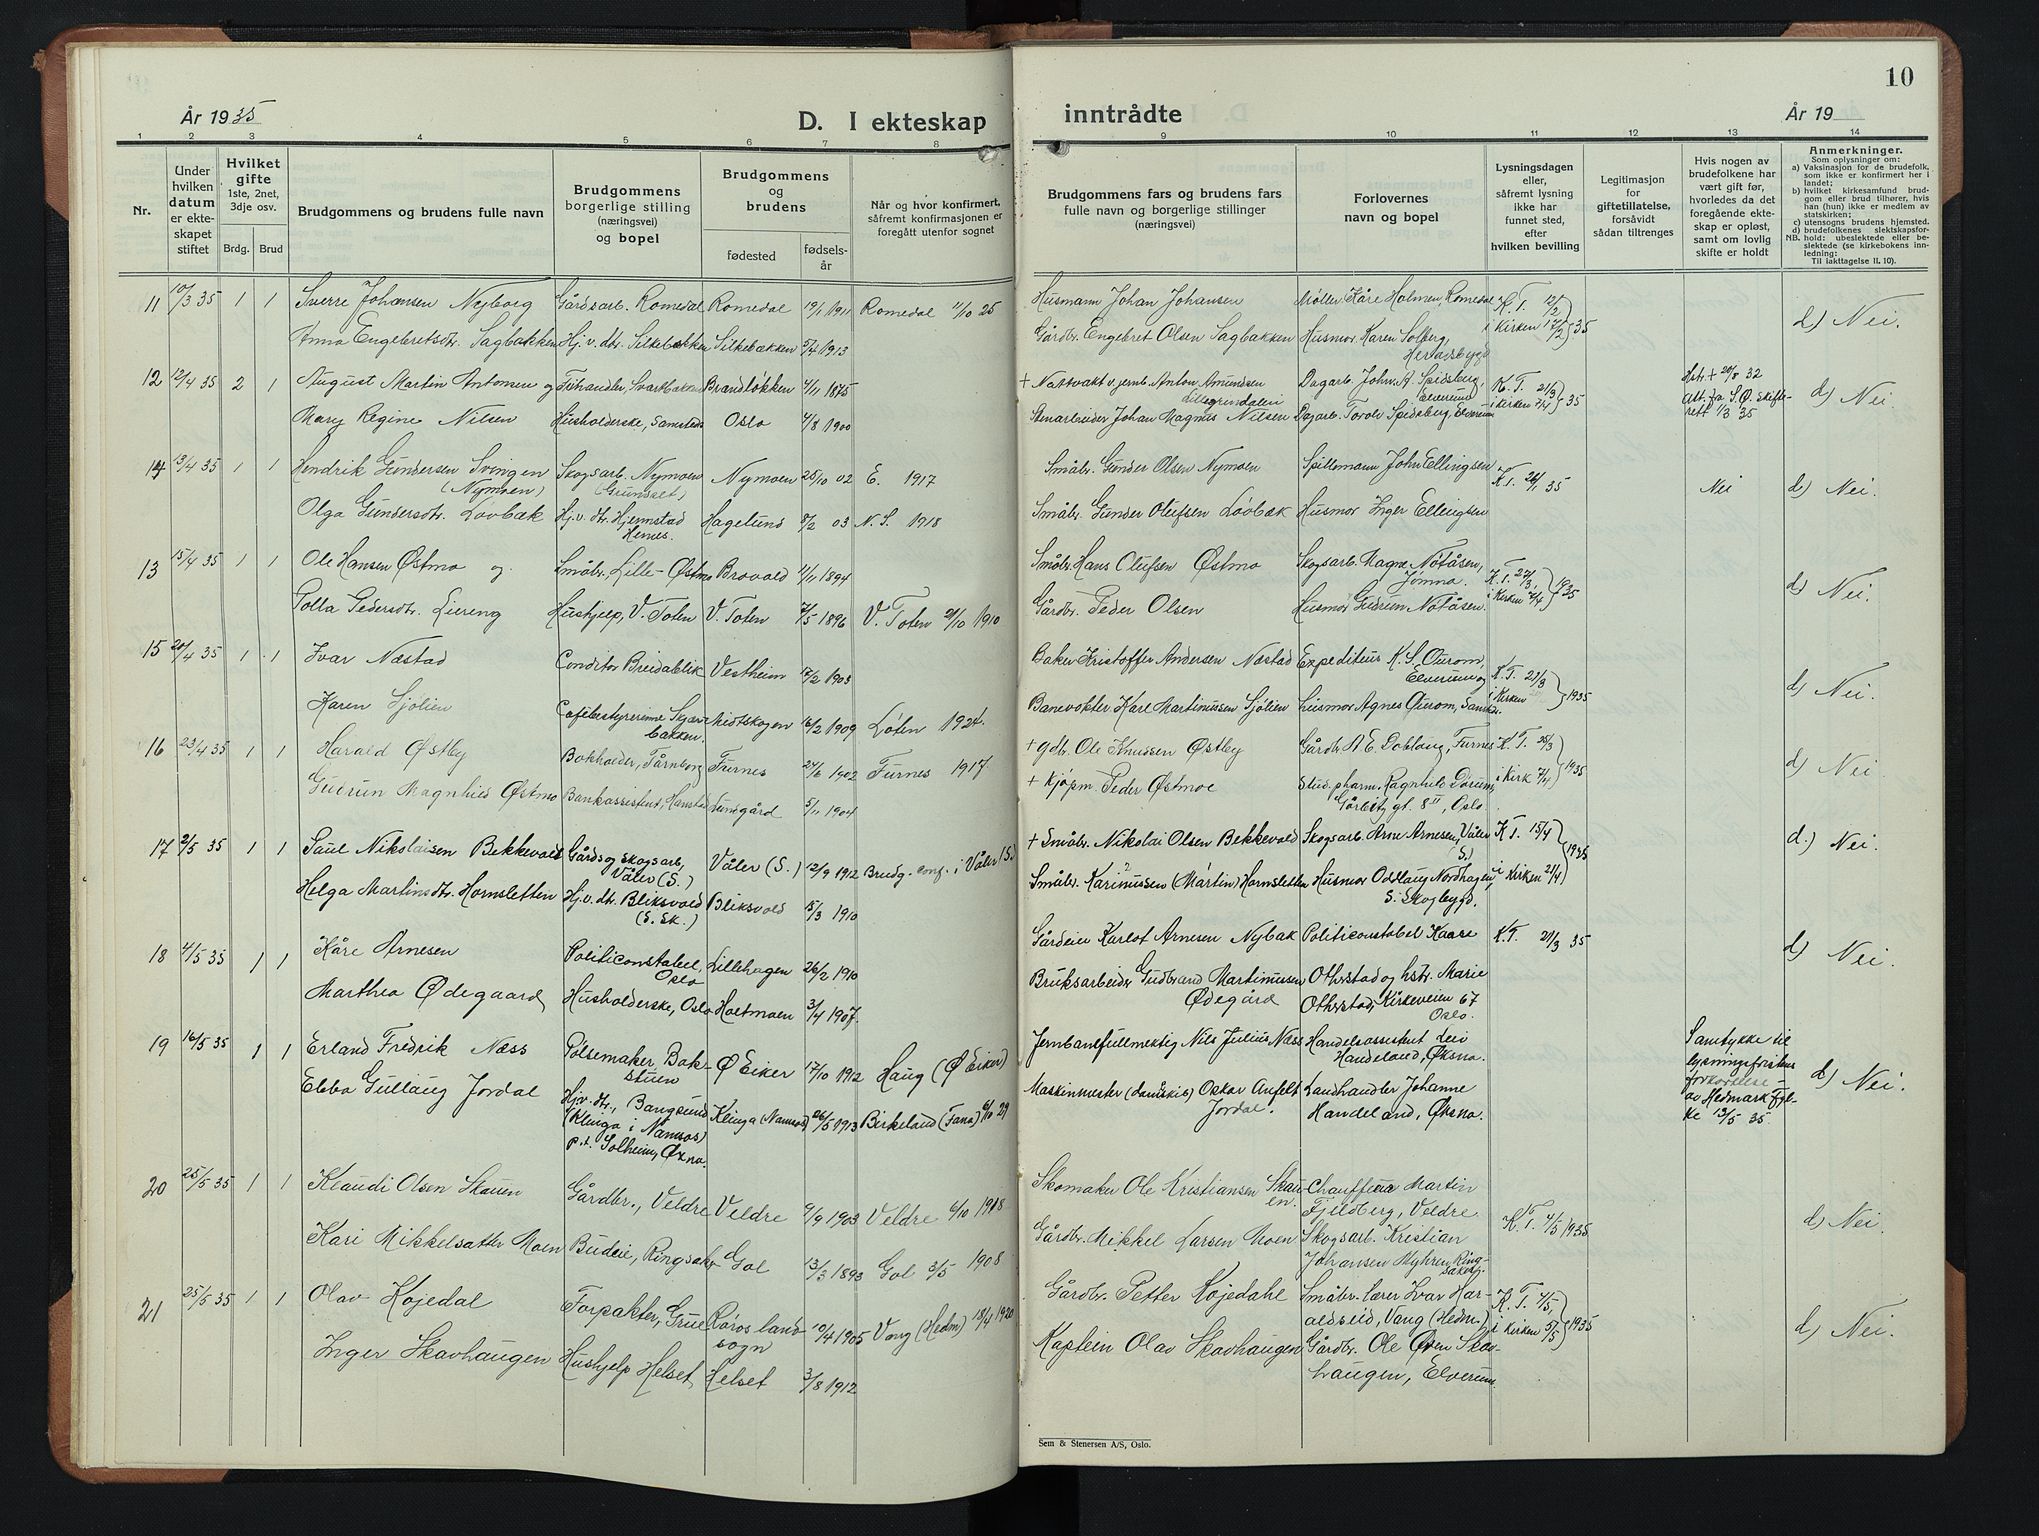 År 1935
D. I ekteskap
inntrådte
År 19
10
1 2 3 4 5 6 7 8 9 10 11 12 13 14
Nr.
Under hvilken datum er ekteskapet stiftet
Hvilket gifte
1ste, 2net, 3dje osv.
Brdg. Brud
Brudgommens og brudens fulle navn
Brudgommens borgerlige stilling (næringsvei) og bopel
Brudgommens og brudens
fødested
fødselsår
Når og hvor konfirmert, såfremt konfirmasjonen er foregått utenfor sognet
Brudgommens fars og brudens fars fulle navn og borgerlige stillinger (næringsvei)
Forlovernes navn og bopel
Lysningsdagen eller, såfremt lysning ikke har funnet sted, efter hvilken bevilling
Legitimasjon for giftetillatelse, forsåvidt sådan tiltrenges
Hvis nogen av brudefolkene har vært gift før, hvorledes da det foregående ekteskap er opløst, samt om lovlig skifte er holdt
Anmerkninger.
Som oplysninger om:
a) Vaksinasjon for de brudefolk, som ikke er konfirmert her i landet;
b) hvilket kirkesamfund brudgom eller brud tilhører, hvis han (hun) ikke er medlem av statskirken;
c) utensogns brudens hjemsted.
d) brudefolkenes slektskapsforhold: ubeslektede eller beslektede (se kirkebokens innledning:
NB.
Til iakttagelse II. 10).
11 10/3 35 1 1 Sverre Johansen Nyborg Gårdsarb. Romedal Romedal 19/1 1911 Romedal 11/10 25 Husmann Johan Johansen Møller Kåre Holmen, Romedal K.T. 12/2 i Kirken 17/2 35 d) Nei.
Anna Engebretsdtr. Sagbakken Hj.v. dtr. Silkebækken Silkebækken 5/4 1913 Gårdbr. Engebret Olsen Sagbakken Husmor Karen Solberg, Heradsbygd
12 12/4 35 2 1 August Martin Antonsen og Fôrhandler, Svartbakken Brandløkken 4/11 1875 + Nattvakt v. jernb. Anton Amundsen Lillegrendalen Dagarb. Johv. A. Spidsberg, Elverum K.T. 21/3 i Kirken 7/4 35 Hstr + 20/8 32 att. fra S.Ø. skifterett 1/3 35 d) Nei
Mary Regine Nilsen Husholderske, samsteds Oslo 4/8 1900 Stenarbeider Johan Magnus Nilsen Dagarb. Torolv Spidsberg, Elverum
14 13/4 35 1 1 Hendrik Gundersen Svingen (Nymoen) Skogsarb. Nymoen (Grundset) Nymoen 25/10 02 E. 1917 Småbr. Gunder Olsen Nymoen Spillemann John Ellingsen K.T. 26/1 35 Nei d) Nei.
Olga Gundersdtr. Lövbæk Hj.v. dtr. Hjemstad Hernes. Hagelund 8/2 03 N.S. 1918 Småbr. Gunder Olufsen Lövbæk Husmor Inger Ellingsen
13 15/4 35 1 1 Ole Hansen Østmo og Småbr. Lille-Østmo Brovold 11/11 1894 Småbr. Hans Olufsen Østmo Skogsarb. Magne Nötåsen, Jömna. K.T. 27/3, i Kirken 7/4 1935 d) Nei.
Polla Pedersdtr. Liereng Hushjelp, V. Toten V. Toten 7/5 1896 V. Toten 21/10 1910 Gårdbr. Peder Olsen Husmor Gudrun Nötåsen.
15 20/4 35 1 1 Ivar Næstad Conditor Breidablik Vestheim 17/2 1903 Baker Kristoffer Andersen Næstad Expediteur K. S. Ourom, Elverum og K.T. 21/3 i Kirken 1935 d) Nei.
Karen Sjölien Cafébestyrerinne Skjærbakken. Midtskogen 16/2 1909 Löten 1924. Banevokter Karl Martinussen Sjölien husmor Agnes Ourom, samsteds.
16 23/4 35 1 1 Harald Østby Bokholder, Tårnborg Furnes 27/6 1902 Furnes 1917 + gdb. Ole Knussen Østby Gårdbr. A. E. Doblaug, Furnes K.T. 25/3 i Kirk 7/4 1935 d) Nei.
Gudrun Magnhild Østmo Bankassistent, Hanstad 5/11 1904 + Kjøpm. Peder Østmoe Stud. pharm. Ragnhild Dörum, Gørbitz gt. 8 II, Oslo.
17 2/5 35 1 1 Paul Nikolaisen Bekkevold Gårds og skogsarb, Våler (S.) Våler (S.) 12/9 1912 Brudg. conf. i Våler (S.) + Småbr. Nikolai Olsen Bekkevold Skogsarb. Arne Arnesen, Våler S.) K.T. 15/4 i Kirken 21/4 1935 d.) Nei.
Helga Martinsdtr. Hornsletten Hj.v. dtr. Bliksvold (S. Sk.) Bliksvold 15/3 1910 Småbr. Karinussen (Martin) Hornsletten Husmor Oddlaug Nordhagen, S. Skogbygd.
18 4/5 35 1 1 Kåre Arnesen Politiconstabel, Oslo Lillehagen 26/2 1910 Gårdeier Karlot Arnesen Nybak Politiconstabel Kaare K.T. 21/3 35 d) Nei.
Marthea Ødegaard Husholderske, Oslo Holtmoen 3/4 1907. Bruksarbeider Gudbrand Martinussen Ødegård Othrstad og hstr. Marie Othrstad, Kirkeveien 67 Oslo.
19 16/5 35 1 1 Erland Fredrik Næss Pølsemaker, Bakstuen Ø Eiker 17/10 1912 Haug (Ø Eiker) Jernbanefullmektig Nils Julius Næss Handelsassistent Leiv Handeland, Øksna. Samtykke til lysningsfristens forkortelse av Hedmark Fylke 13/5 35. d) Nei.
Ebba Gullaug Jordal Hj.v. dtr., Bangsund (Klinga i Namsos) p.t. Solheim, Øxna. Klinga (Namsos) 26/5 1913 Birkeland (Fana) 6/10 29 Maskinmester (Landskis) Oskar Anfelt Jordal. Landhandler Johanne Handeland, Øksna.
20 25/5 35 1 1 Klaudi Olsen Skauen Gårdbr., Veldre Veldre 9/9 1903 Veldre 6/10 1918 Skomaker Ole Kristiansen Skauen. Chauffeur Martin Fjeldberg, Veldre K.T. 4/5 1935 d) Nei.
Kari Mikkelsatter Moen Budeie, Ringsaker Gol 13/3 1893 Gol 3/5 1908 Gårdbr. Mikkel Larsen Moen Skogsarb. Kristian Johansen Myhren, Ringsaker.
21 25/5 35 1 1 Olav Kojedal Forpakter, Grue Røros landsogn 10/4 1905 Vang (Hedm) 18/4 1920 Gårdbr. Petter Kojedahl Småbr.lærer Ivar Haraldseid, Vang (Hedm.) K.T. 4/5, i Kirken 5/5 1935 d) Nei.
Inger Skavhaugen Hushjelp Helset Helset 3/8 1912 Kaptein Olav Skavhaugen Gårdbr. Ole Øven Skavhaugen, Elverum
Sem & Stenersen A/S, Oslo.